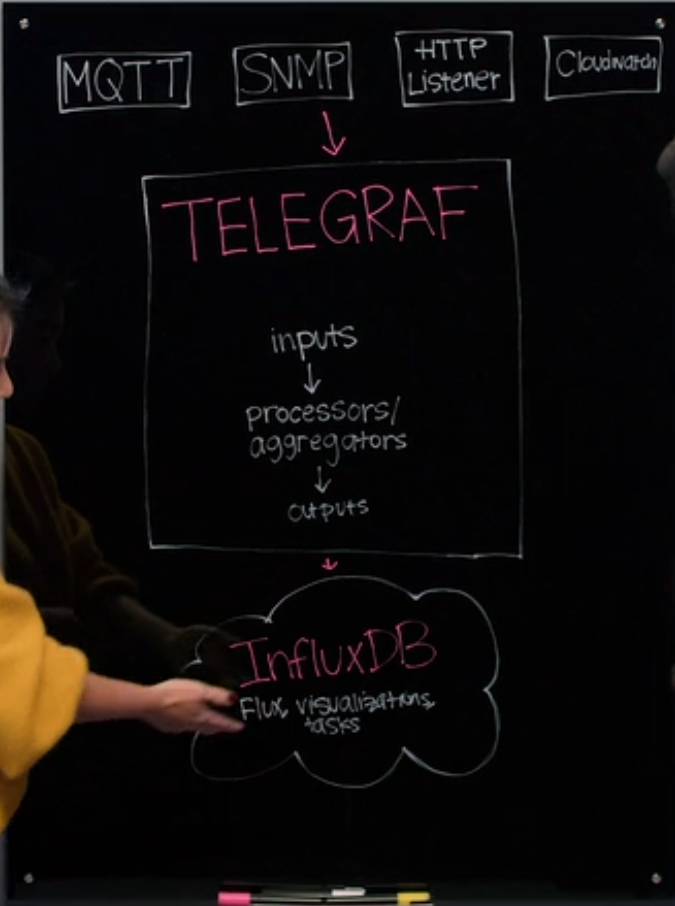 MQTT
SNMP
HTTP
Listener
Cloudwatch
TELEGRAF
inputs
processors/
aggregators
outputs
InfluxDB
Flux, visualizations,
tasks